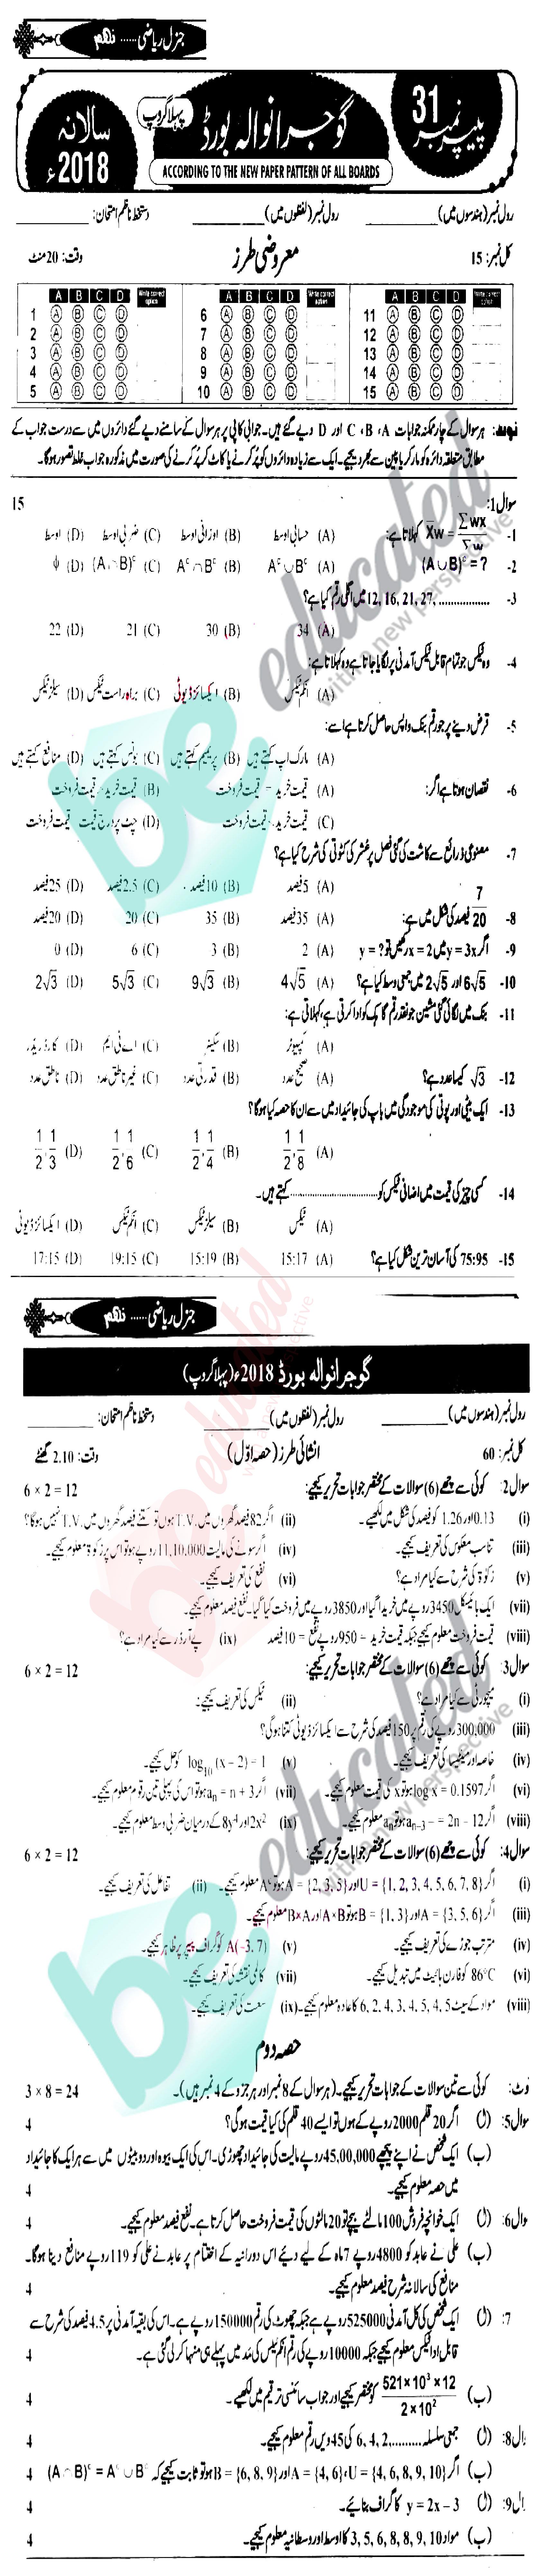 جنرل ریاضی ...... نہم
پیپر نمبر 31
گوجرانوالہ بورڈ
پہلا گروپ
سالانہ 2018ء
ACCORDING TO THE NEW PAPER PATTERN OF ALL BOARDS
رول نمبر (ہندسوں میں) ________ رول نمبر (لفظوں میں) ________ دستخط ناظم امتحان: ________
کل نمبر: 15 معروضی طرز وقت: 20 منٹ
A B C D Write correct option A B C D A B C D
1 A B C D 6 A B C D 11 A B C D
2 A B C D 7 A B C D 12 A B C D
3 A B C D 8 A B C D 13 A B C D
4 A B C D 9 A B C D 14 A B C D
5 A B C D 10 A B C D 15 A B C D
نوٹ: ہر سوال کے چار ممکنہ جوابات A، B، C اور D دیے گئے ہیں۔ جوابی کاپی پر ہر سوال کے سامنے دیے گئے دائروں میں سے درست جواب کے
مطابق متعلقہ دائرہ کو مارکر یا پین سے بھر دیجیے۔ ایک سے زیادہ دائروں کو پُر کرنے یا کاٹ کر پُر کرنے کی صورت میں مذکورہ جواب غلط تصور ہوگا۔
سوال 1: 15
1- X̄w = ∑wx / ∑w کہلاتا ہے: (A) حسابی اوسط (B) اوزانی اوسط (C) ضربی اوسط (D) اوسط
2- (A∪B)ᶜ = ? (A) Aᶜ∪Bᶜ (B) Aᶜ∩Bᶜ (C) (A∩B)ᶜ (D) ϕ
3- 12, 16, 21, 27, ................ میں اگلی رقم کیا ہے؟
(A) 34 (B) 30 (C) 21 (D) 22
4- وہ ٹیکس جو تمام قابل ٹیکس آمدنی پر لگایا جاتا ہے وہ کہلاتا ہے:
(A) انکم ٹیکس (B) ایکسائز ڈیوٹی (C) براہ راست ٹیکس (D) سیلز ٹیکس
5- قرض دینے پر جو رقم بنک واپس حاصل کرتا ہے اسے:
(A) مارک اپ کہتے ہیں (B) پریمیم کہتے ہیں (C) بونس کہتے ہیں (D) منافع کہتے ہیں
6- نقصان ہوتا ہے اگر: (A) قیمت خرید = قیمت فروخت (B) قیمت خرید قیمت فروخت
(C) قیمت خرید قیمت فروخت (D) چٹ پر درج قیمت قیمت فروخت
7- مصنوعی ذرائع سے کاشت کی گئی فصل پر عشر کی کٹوتی کی شرح کیا ہے؟
(A) 5 فیصد (B) 10 فیصد (C) 2.5 فیصد (D) 25 فیصد
8- 7/20 فیصد کی شکل میں ہے: (A) 35 فیصد (B) 35 (C) 20 (D) 20 فیصد
9- اگر y = 3x میں x = 2 رکھیں تو y = ? (A) 2 (B) 3 (C) 6 (D) 0
10- 6√5 اور 2√5 میں جمعی وسط کیا ہے؟ (A) 4√5 (B) 9√3 (C) 5√3 (D) 2√3
11- بنک میں لگائی گئی مشین جو نقد رقم گاہک کو ادا کرتی ہے، کہلاتی ہے:
(A) کمپیوٹر (B) سکینر (C) اے ٹی ایم (D) کارڈ ریڈر
12- √3 کیسا عدد ہے؟ (A) صحیح عدد (B) قدرتی عدد (C) غیر ناطق عدد (D) ناطق عدد
13- ایک بیٹی اور پوتی کی موجودگی میں باپ کی جائیداد میں سے ان کا حصہ کیا ہوگا؟
(A) 1/2, 1/8 (B) 1/2, 1/4 (C) 1/2, 1/6 (D) 1/2, 1/3
14- کسی چیز کی قیمت میں اضافی ٹیکس کو ........................ کہتے ہیں۔
(A) ٹیکس (B) سیلز ٹیکس (C) انکم ٹیکس (D) ایکسائز ڈیوٹی
15- 75:95 کی آسان ترین شکل کیا ہے؟ (A) 15:17 (B) 15:19 (C) 19:15 (D) 17:15
جنرل ریاضی ...... نہم
گوجرانوالہ بورڈ 2018ء (پہلا گروپ)
رول نمبر (ہندسوں میں) ________ رول نمبر (لفظوں میں) ________ دستخط ناظم امتحان: ________
کل نمبر: 60 انشائی طرز (حصہ اول) وقت: 2.10 گھنٹے
سوال 2: کوئی سے چھے (6) سوالات کے مختصر جوابات تحریر کیجیے: 6 × 2 = 12
(i) 0.13 اور 1.26 کو فیصد کی شکل میں لکھیے۔ (ii) اگر 82 فیصد گھروں میں T.V. ہوں تو کتنے فیصد گھروں میں T.V. نہیں ہوگا؟
(iii) تناسب معکوس کی تعریف کیجیے۔ (iv) اگر سونے کی مالیت 11,10,000 روپے ہو تو اس پر زکوٰۃ معلوم کیجیے۔
(v) زکوٰۃ کی شرح سے کیا مراد ہے؟ (vi) نفع کی تعریف کیجیے۔
(vii) ایک بائیسکل 3450 روپے میں خریدا گیا اور 3850 روپے میں فروخت کیا گیا۔ نفع فیصد معلوم کیجیے۔
(viii) قیمت فروخت معلوم کیجیے جبکہ قیمت خرید = 950 روپے نفع = 10 فیصد (ix) پے آرڈر سے کیا مراد ہے؟
سوال 3: کوئی سے چھے (6) سوالات کے مختصر جوابات تحریر کیجیے: 6 × 2 = 12
(i) میچورٹی سے کیا مراد ہے؟ (ii) ٹیکس کی تعریف کیجیے:
(iii) 300,000 روپے کی رقم پر 150 فیصد کی شرح سے ایکسائز ڈیوٹی کتنا ہوگی؟
(iv) خاصہ اور مینٹیسا کی تعریف کیجیے۔ (v) log₁₀ (x – 2) = 1 کو حل کیجیے۔
(vi) اگر log x = 0.1597 ہو تو x کی قیمت معلوم کیجیے۔ (vii) اگر aₙ = n + 3 ہو تو اس کی پہلی تین رقوم معلوم کیجیے۔
(viii) اگر aₙ₋₃ = 2n – 12 ہو تو aₙ معلوم کیجیے۔ (ix) 2x² اور 8y⁴ کے درمیان ضربی وسط معلوم کیجیے۔
سوال 4: کوئی سے چھے (6) سوالات کے مختصر جوابات تحریر کیجیے: 6 × 2 = 12
(i) اگر U = {1, 2, 3, 4, 5, 6, 7, 8} اور A = {2, 3, 5} ہو تو Aᶜ معلوم کیجیے۔ (ii) تفاعل کی تعریف کیجیے۔
(iii) اگر A = {3, 5, 6} اور B = {1, 3} ہو تو A×B اور B×A معلوم کیجیے۔
(iv) مرتب جوڑے کی تعریف کیجیے۔ (v) A(–3, 7) کو گراف پیپر پر ظاہر کیجیے۔
(vi) 86°C کو فارن ہائیٹ میں تبدیل کیجیے۔ (vii) کالمی نقشہ کی تعریف کیجیے۔
(viii) مواد کے سیٹ 6, 2, 4, 3, 4, 5, 4, 5 کا عادہ معلوم کیجیے۔ (ix) سعت کی تعریف کیجیے۔
حصہ دوم
نوٹ: کوئی سے تین سوالات کے جوابات تحریر کیجیے۔ (ہر سوال کے 8 نمبر اور ہر جزو کے 4 نمبر ہیں)۔ 3 × 8 = 24
سوال 5: (ا) اگر 20 قلم 2000 روپے کے ہوں تو ایسے 40 قلم کی کیا قیمت ہوگی؟ 4
(ب) ایک شخص نے اپنے پیچھے 45,00,000 روپے مالیت کی جائیداد چھوڑی۔ اس کی ایک بیوہ اور دو بیٹوں میں سے ہر ایک کا جائیداد
میں حصہ معلوم کیجیے۔ 4
وال 6: (ا) ایک خوانچہ فروش 100 مالٹے بیچے تو 20 مالٹوں کی قیمت فروخت حاصل کرتا ہے۔ نفع فیصد معلوم کیجیے۔ 4
(ب) علی نے عابد کو 4800 روپے 7 ماہ کے لیے دیئے اس دورانیہ کے اختتام پر عابد نے علی کو 119 روپے منافع دینا ہوگا۔
منافع کی سالانہ شرح فیصد معلوم کیجیے۔ 4
7: (ا) ایک شخص کی کل آمدنی 525000 روپے ہے جبکہ چھوٹ کی رقم 150000 روپے ہے۔ اس کی بقیہ آمدنی پر 4.5 فیصد کی شرح سے
قابل ادا ٹیکس معلوم کیجیے جبکہ 10000 روپے کی رقم انکم ٹیکس کی مد میں پہلے ہی منہا کر لی گئی ہے۔ 4
(ب) 521×10³×12 / 2×10² کو مختصر کیجیے اور جواب سائنسی ترقیم میں لکھیے۔ 4
ال 8: (ا) جمعی سلسلہ 6, 4, 2, .......... کی 45 ویں رقم معلوم کیجیے۔ 4
(ب) اگر U = {4, 6, 8, 9, 10}، A = {4, 6} اور B = {6, 8, 9} ہو تو ثابت کیجیے کہ (A∩B)ᶜ = Aᶜ∪Bᶜ 4
ال 9: (ا) y = 2x – 3 کا گراف بنائیے۔ 4
(ب) مواد 3, 5, 6, 8, 8, 9, 10 کا اوسط اور وسطانیہ معلوم کیجیے۔ 4
be educated
with a new perspective